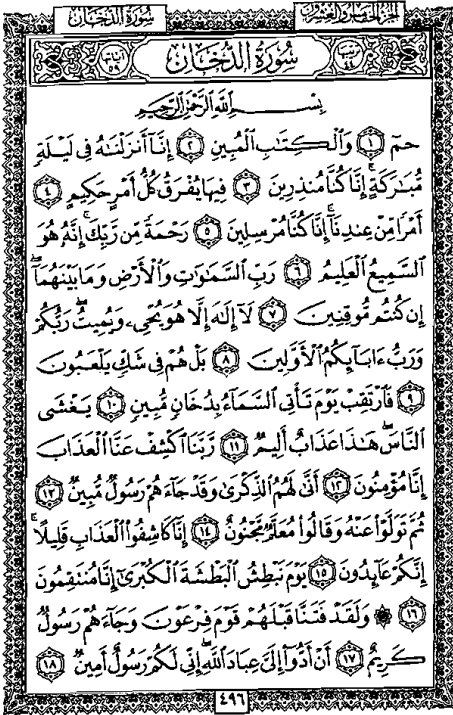 سُورَةُ الدُّخَانِ
الجزء الخامس والعشرون
سُورَةُ الدُّخَانِ
ترتيبها ٤٤
آياتها ٥٩
بِسْمِ اللَّهِ الرَّحْمَٰنِ الرَّحِيمِ
حمٓ ١ وَالْكِتَابِ الْمُبِينِ ٢ إِنَّا أَنزَلْنَاهُ فِي لَيْلَةٍ
مُّبَارَكَةٍ ۚ إِنَّا كُنَّا مُنذِرِينَ ٣ فِيهَا يُفْرَقُ كُلُّ أَمْرٍ حَكِيمٍ ٤
أَمْرًا مِّنْ عِندِنَا ۚ إِنَّا كُنَّا مُرْسِلِينَ ٥ رَحْمَةً مِّن رَّبِّكَ ۚ إِنَّهُ هُوَ
السَّمِيعُ الْعَلِيمُ ٦ رَبِّ السَّمَاوَاتِ وَالْأَرْضِ وَمَا بَيْنَهُمَا ۖ
إِن كُنتُم مُّوقِنِينَ ٧ لَا إِلَٰهَ إِلَّا هُوَ يُحْيِي وَيُمِيتُ ۖ رَبُّكُمْ
وَرَبُّ ءَابَائِكُمُ الْأَوَّلِينَ ٨ بَلْ هُمْ فِي شَكٍّ يَلْعَبُونَ
٩ فَارْتَقِبْ يَوْمَ تَأْتِي السَّمَاءُ بِدُخَانٍ مُّبِينٍ ١٠ يَغْشَى
النَّاسَ ۖ هَٰذَا عَذَابٌ أَلِيمٌ ١١ رَّبَّنَا اكْشِفْ عَنَّا الْعَذَابَ
إِنَّا مُؤْمِنُونَ ١٢ أَنَّىٰ لَهُمُ الذِّكْرَىٰ وَقَدْ جَاءَهُمْ رَسُولٌ مُّبِينٌ ١٣
ثُمَّ تَوَلَّوْا عَنْهُ وَقَالُوا مُعَلَّمٌ مَّجْنُونٌ ١٤ إِنَّا كَاشِفُوا الْعَذَابِ قَلِيلًا ۚ
إِنَّكُمْ عَائِدُونَ ١٥ يَوْمَ نَبْطِشُ الْبَطْشَةَ الْكُبْرَىٰ إِنَّا مُنتَقِمُونَ
١٦ ۞ وَلَقَدْ فَتَنَّا قَبْلَهُمْ قَوْمَ فِرْعَوْنَ وَجَاءَهُمْ رَسُولٌ
كَرِيمٌ ١٧ أَنْ أَدُّوا إِلَيَّ عِبَادَ اللَّهِ ۖ إِنِّي لَكُمْ رَسُولٌ أَمِينٌ ١٨
٤٩٦